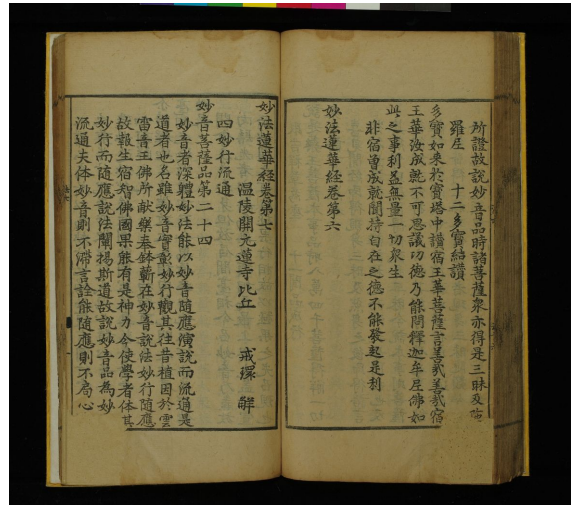 所證故說妙音品時諸菩薩衆亦得是三昧及陀
羅尼　十二多寶結讚
多寶如來於寶塔中讚宿王華菩薩言善哉善哉宿
王華汝成就不可思議功德乃能問釋迦牟尼佛如
此之事利益無量一切衆生
非宿曾成就聞持自在之德不能發起是利
妙法蓮華經卷第六
妙法蓮華經卷第七
溫陵開元蓮寺比丘　戒環　解
四妙行流通
妙音菩薩品第二十四
妙音者深體妙法能以妙音隨應演說而流通是
道者也名雖妙音實彰妙行觀其往昔植因於雲
雷音王佛所獻樂奉鉢蘄在妙音說法妙行隨應
故報生宿智佛國果能有是神力今使學者体其
妙行而隨應說法闡揚斯道故說妙音品為妙
流通夫体妙音則不滯言詮能隨應則不局心